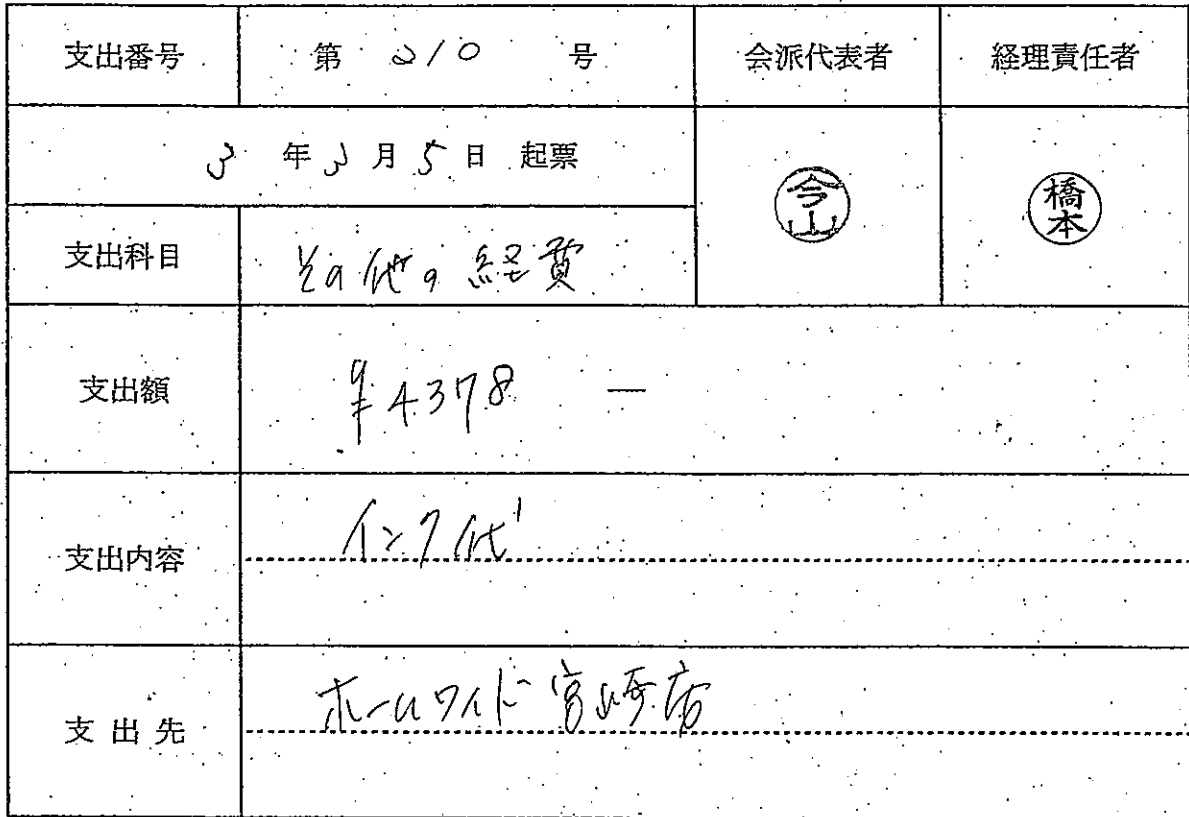 支出番号 第 210 号 会派代表者 経理責任者
3 年 3 月 5 日 起票
今山 橋本
支出科目 その他の経費
支出額 ¥4378 ―
支出内容 インク代
支出先 ホームワイド宮崎店